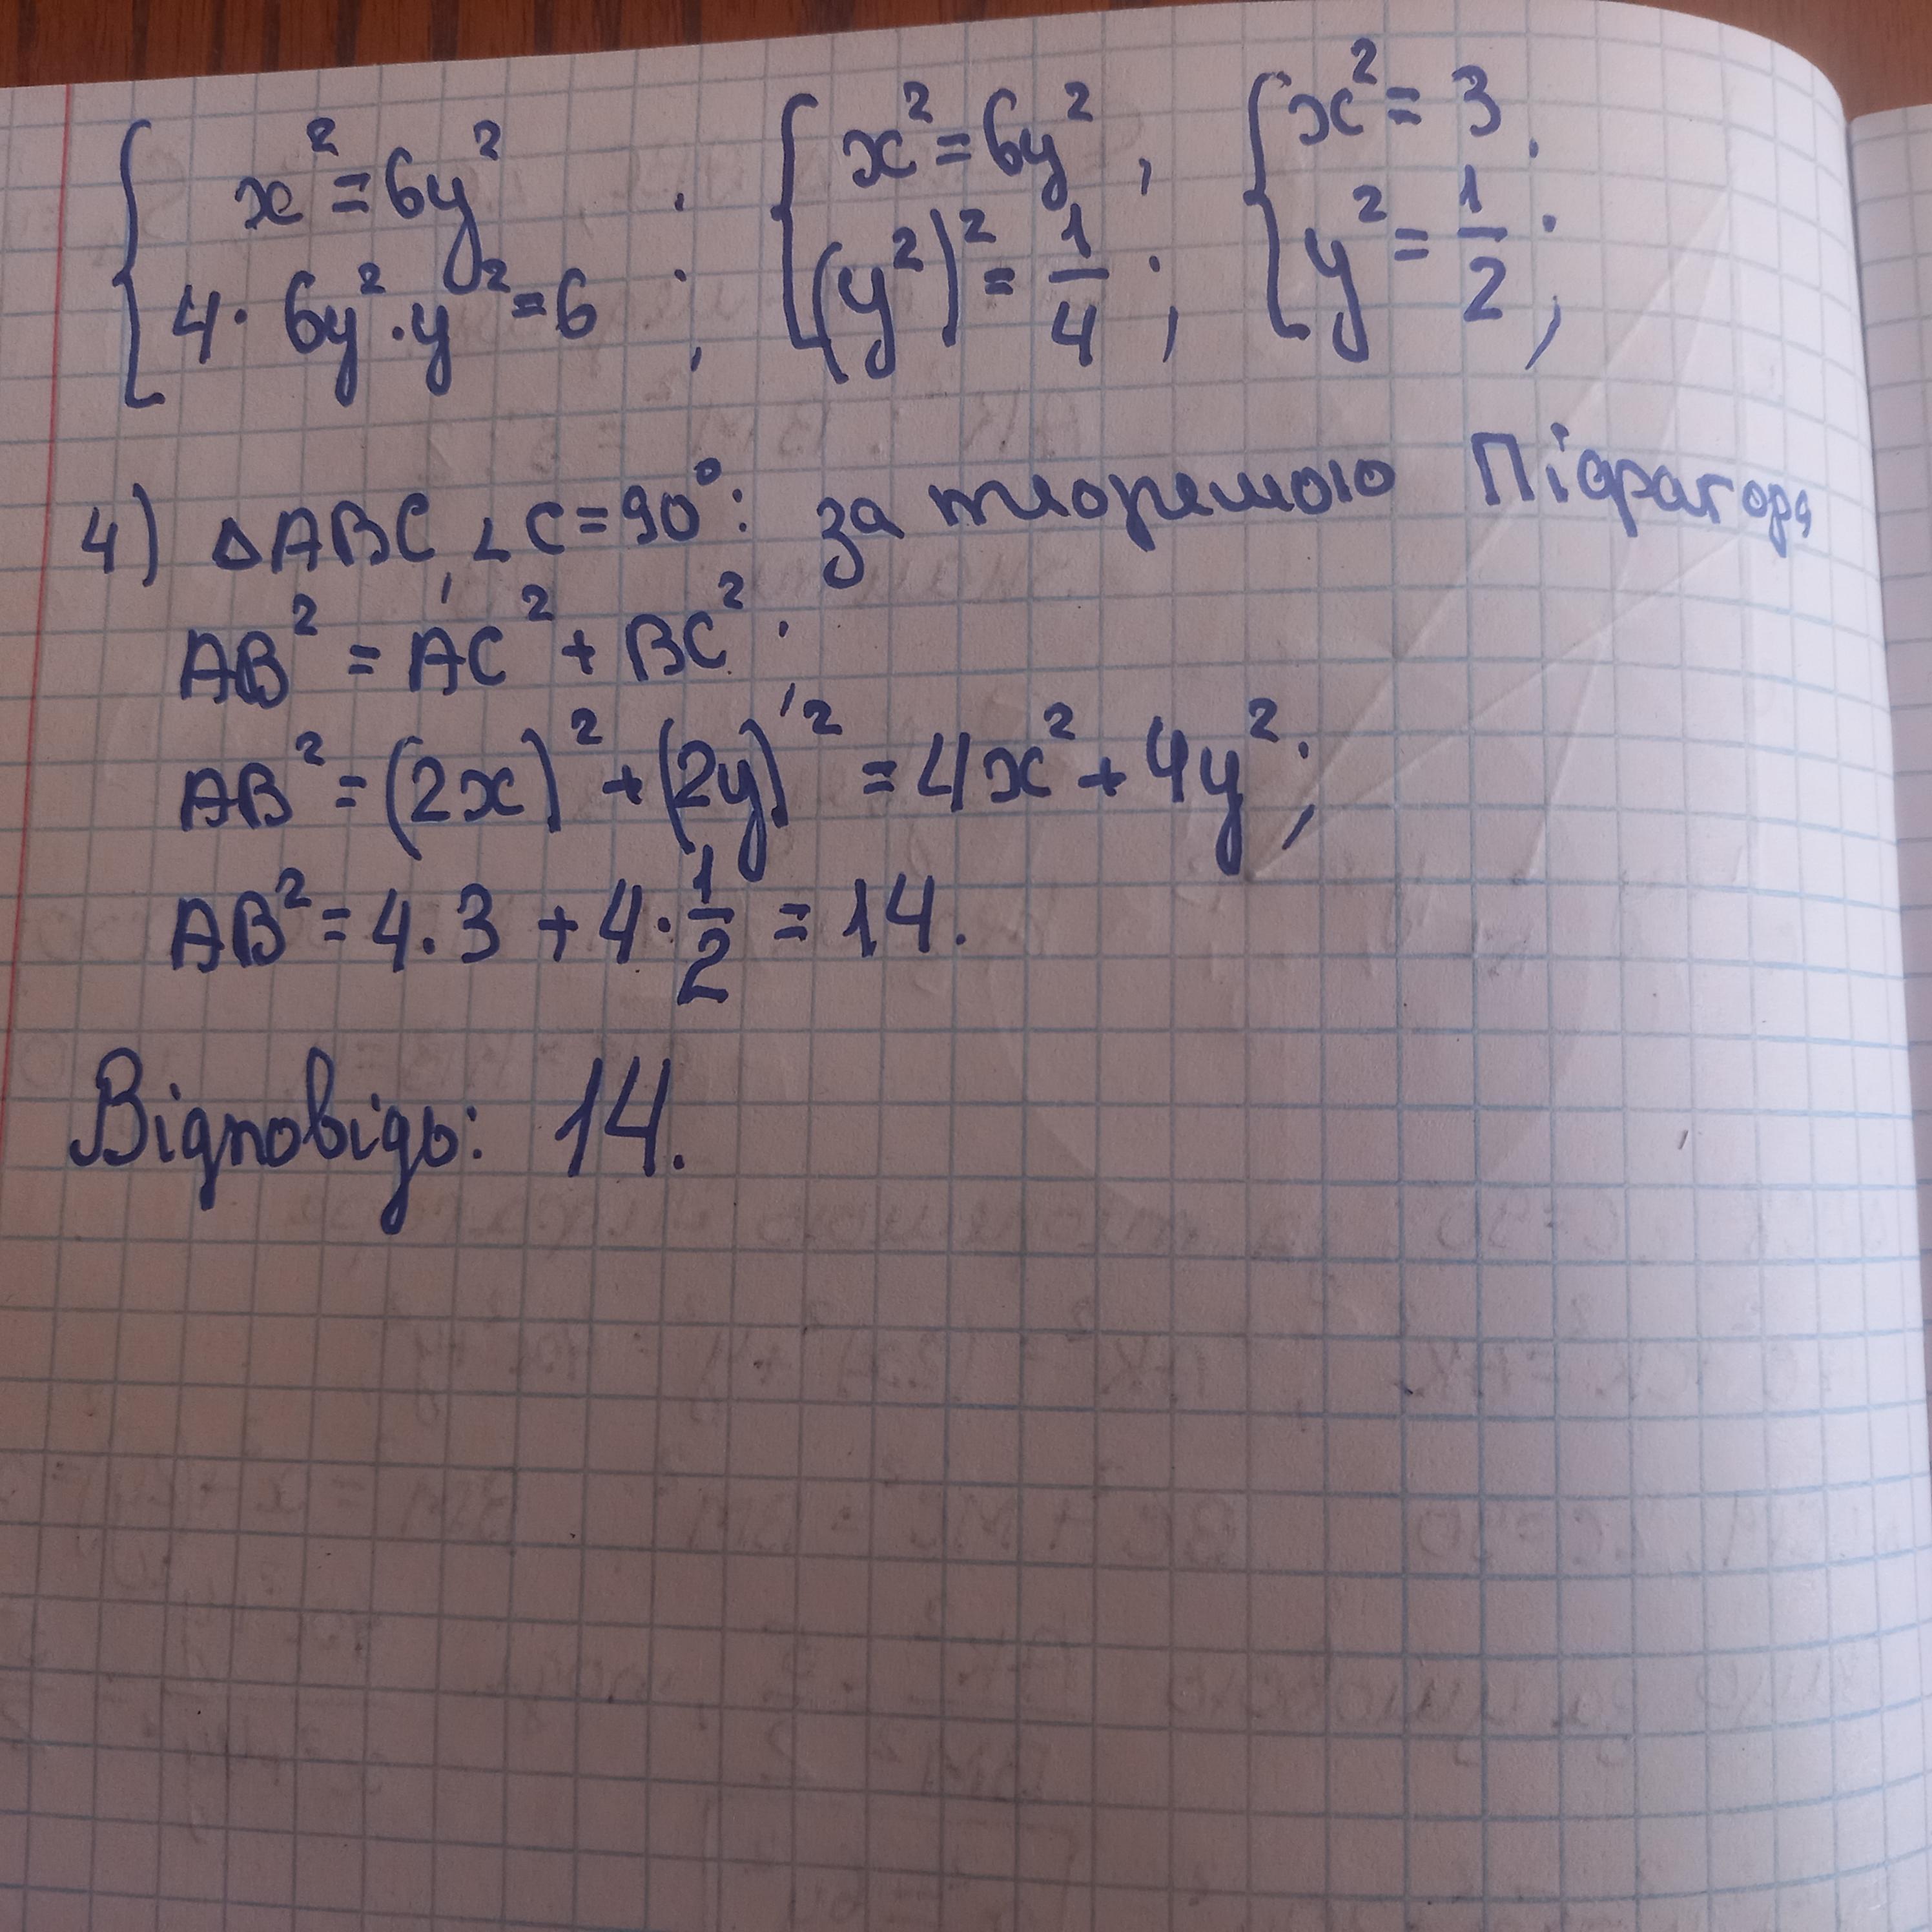 { x² = 6y² ; { x² = 6y² ; { x² = 3
4 · 6y² · y² = 6 ; (y²)² = 1/4 ; y² = 1/2 ;
4) △ABC, ∠C = 90°: за теоремою Піфагора
AB² = AC² + BC² ;
AB² = (2x)² + (2y)² = 4x² + 4y² ;
AB² = 4 · 3 + 4 · 1/2 = 14.
Відповідь: 14.